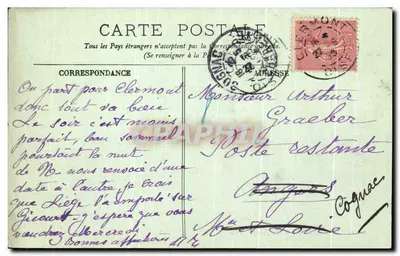 CARTE POSTALE
Tous les Pays étrangers n'acceptent pas la correspondance
(Se renseigner à la Poste)
CORRESPONDANCE
ADRESSE
CLERMONT
COGNAC
On part pour Clermont
donc tout va bien
Le soir c'est moins
parfait, peu sommeil
pourtant la nuit
de N. nous renvoie d'une
date à l'autre, je crois
que Liège l'a emporté sur
j'espère que vous
viendrez Mercredi.
Bonnes affections
Monsieur Arthur
Graeber
Poste restante
Angers
Mne et Loire
Cognac